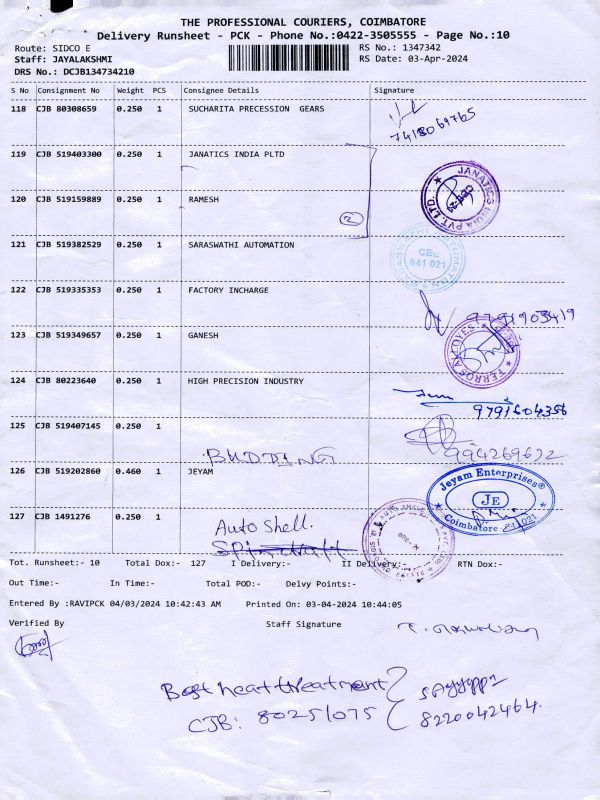 THE PROFESSIONAL COURIERS, COIMBATORE
Delivery Runsheet - PCK - Phone No.:0422-3505555 - Page No.:10
Route: SIDCO E
RS No.: 1347342
Staff: JAYALAKSHMI
RS Date: 03-Apr-2024
DRS No.: DCJB134734210
S No Consignment No Weight PCS Consignee Details Signature
118 CJB 80308659 0.250 1 SUCHARITA PRECESSION GEARS
7418069765
119 CJB 519403300 0.250 1 JANATICS INDIA PLTD
JANATICS INDIA PVT. LTD.
120 CJB 519159889 0.250 1 RAMESH
2
121 CJB 519382529 0.250 1 SARASWATHI AUTOMATION
CBE
641 021
122 CJB 519335353 0.250 1 FACTORY INCHARGE
9791903419
123 CJB 519349657 0.250 1 GANESH
124 CJB 80223640 0.250 1 HIGH PRECISION INDUSTRY
9791604356
125 CJB 519407145 0.250 1
994269632
126 CJB 519202860 0.460 1 JEYAM
Jeyam Enterprises®
JE
Coimbatore
127 CJB 1491276 1
Auto Shell.
Tot. Runsheet:- 10 Total Dox:- 127 I Delivery:- II Delivery:- RTN Dox:-
Out Time:- In Time:- Total POD:- Delvy Points:-
Entered By :RAVIPCK 04/03/2024 10:42:43 AM Printed On: 03-04-2024 10:44:05
Verified By Staff Signature
Best heat threatment
CJB: 80251075
8220042464.